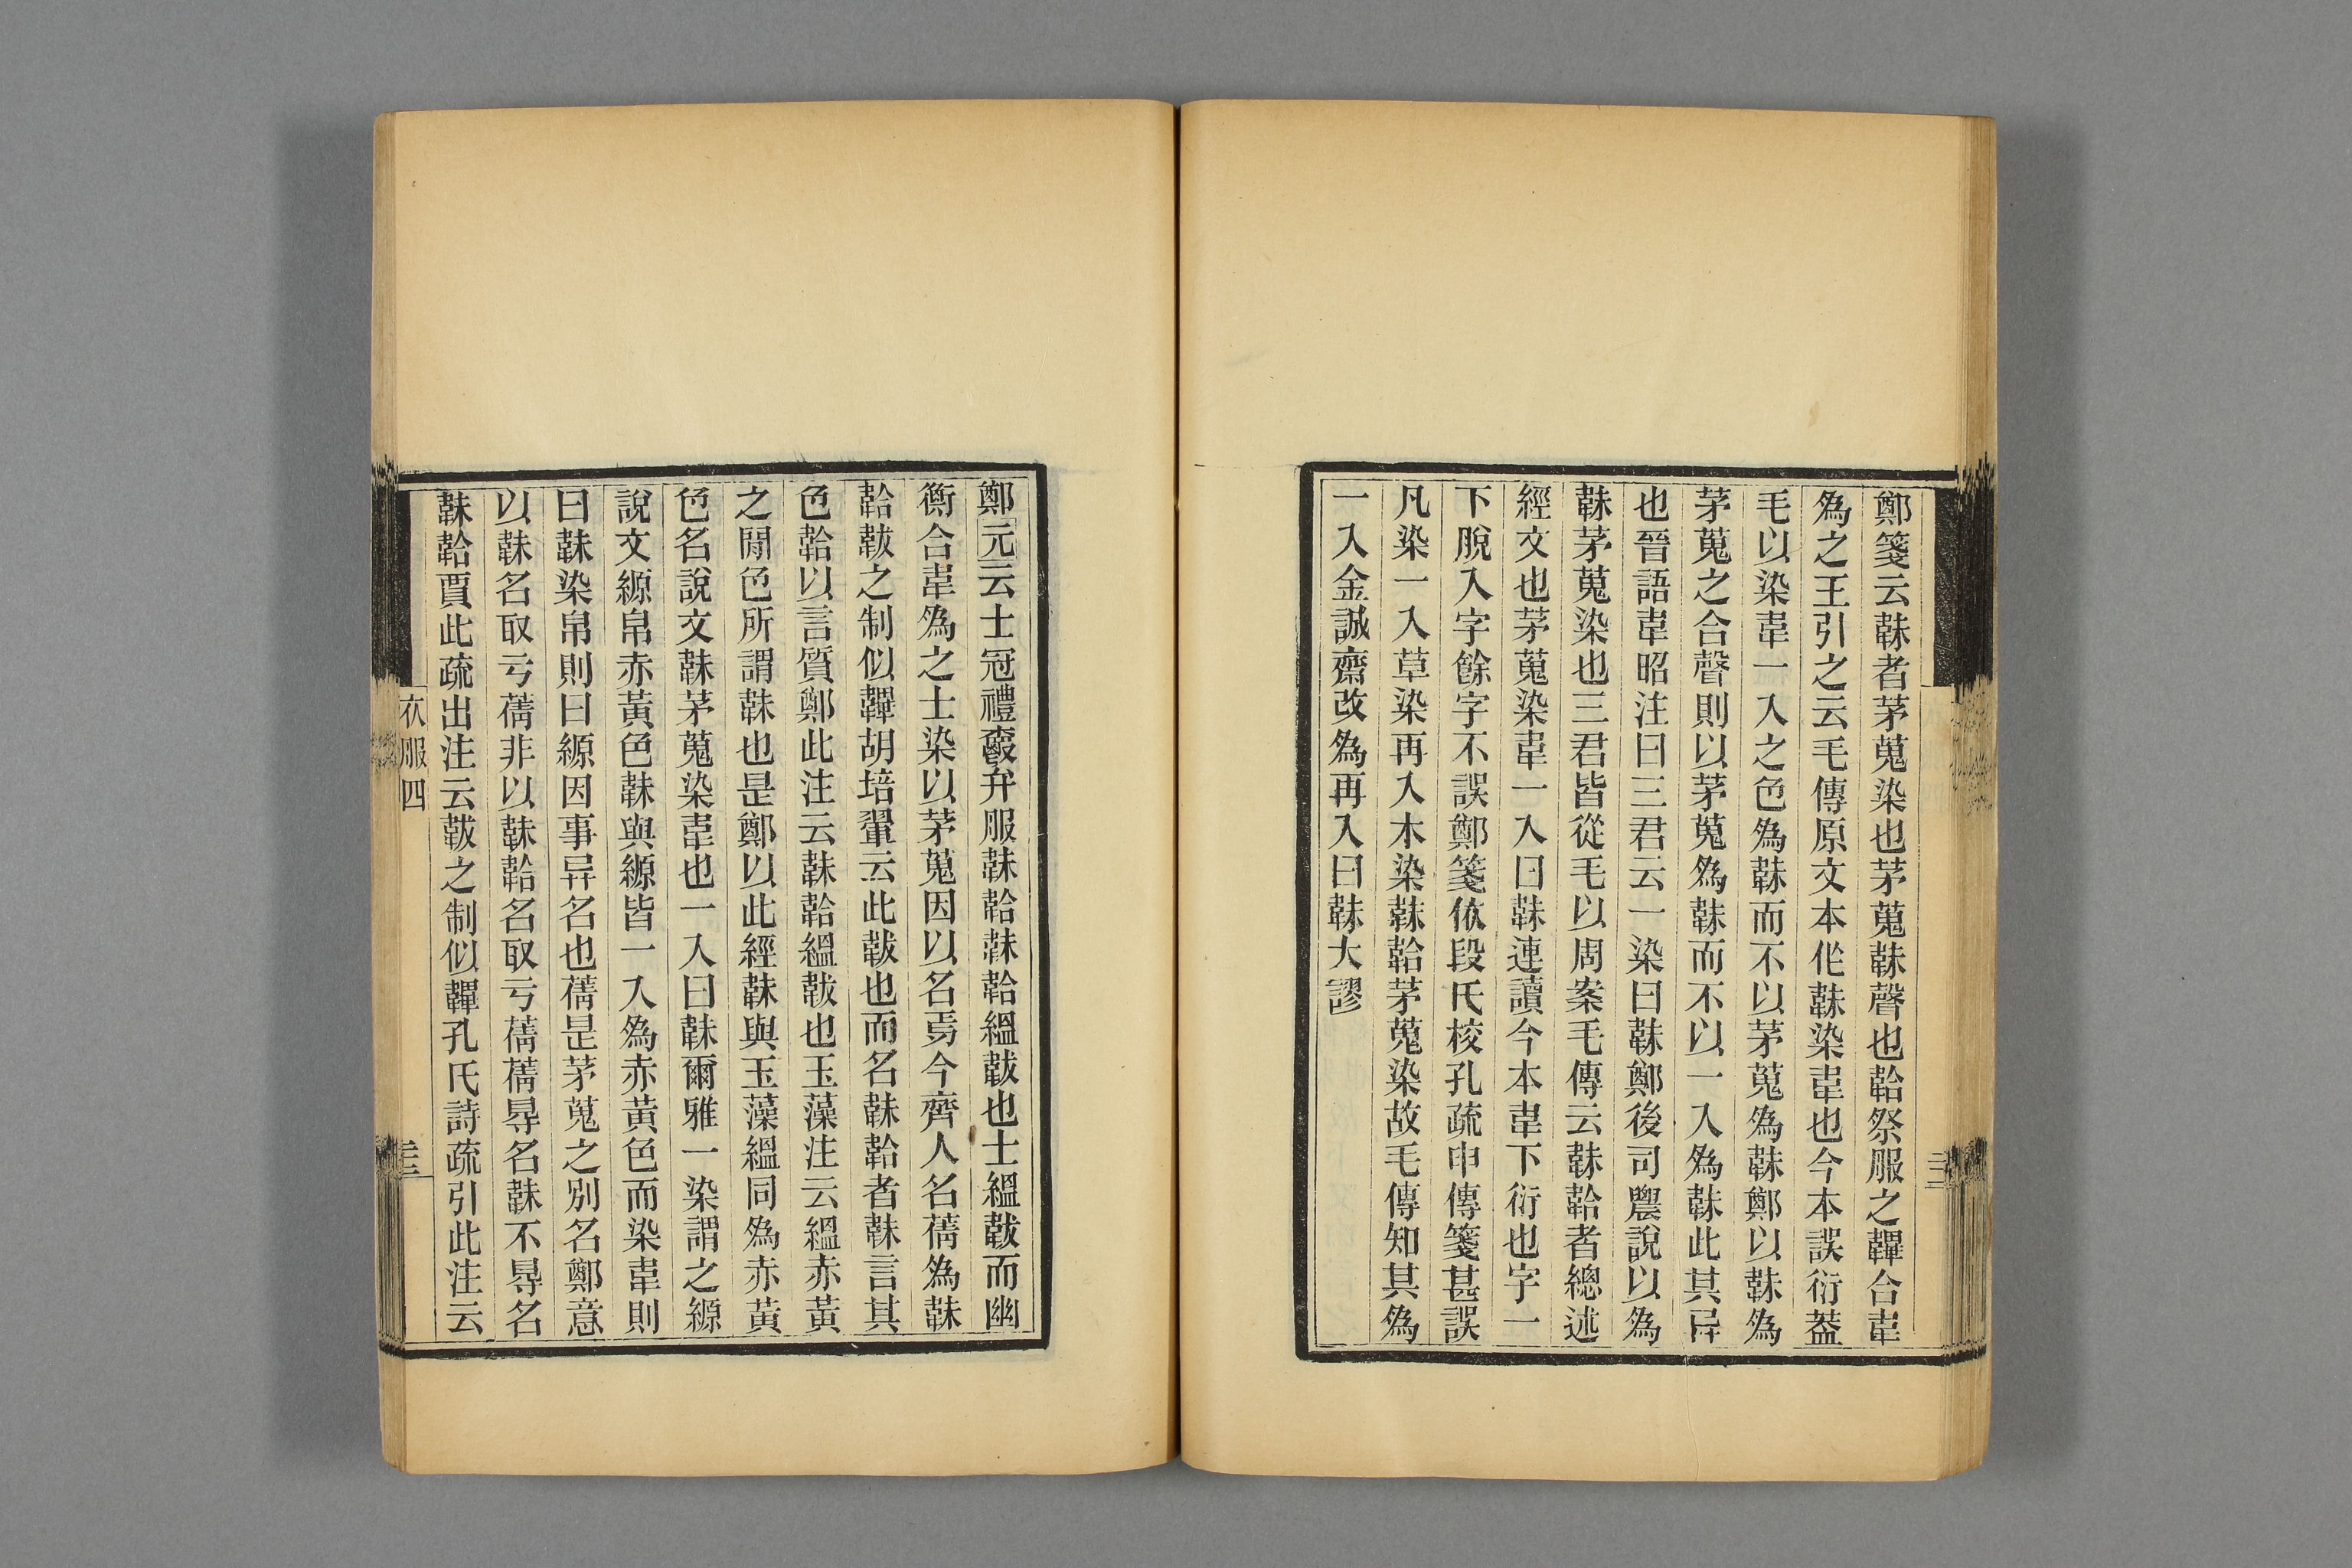 鄭箋云韎者茅蒐染也茅蒐韎聲也韐祭服之韠合韋
爲之王引之云毛傳原文本作韎染韋也今本誤衍葢
毛以染韋一入之色爲韎而不以茅蒐爲韎鄭以韎爲
茅蒐之合聲則以茅蒐爲韎而不以一入爲韎此其异
也晉語韋昭注曰三君云一染曰韎鄭後司農說以爲
韎茅蒐染也三君皆從毛以周案毛傳云韎韐者總述
經文也茅蒐染韋一入曰韎連讀今本韋下衍也字一
下脫入字餘字不誤鄭箋依段氏校孔疏申傳箋甚誤
凡染一入草染再入木染韎韐茅蒐染故毛傳知其爲
一入金誠齋改爲再入曰韎大謬
鄭元云士冠禮爵弁服韎韐韎韐縕韍也士縕韍而幽
衡合韋爲之士染以茅蒐因以名焉今齊人名蒨爲韎
韐韍之制似韠胡培翬云此韍也而名韎韐者韎言其
色韐以言質鄭此注云韎韐縕韍也玉藻注云縕赤黃
之閒色所謂韎也是鄭以此經韎與玉藻縕同爲赤黃
色名說文韎茅蒐染韋也一入曰韎爾雅一染謂之縓
說文縓帛赤黃色韎與縓皆一入爲赤黃色而染韋則
曰韎染帛則曰縓因事异名也蒨是茅蒐之別名鄭意
以韎名取亏蒨非以韎韐名取亏蒨蒨得名韎不得名
韎韐賈此疏出注云韍之制似韠孔氏詩疏引此注云
衣服四